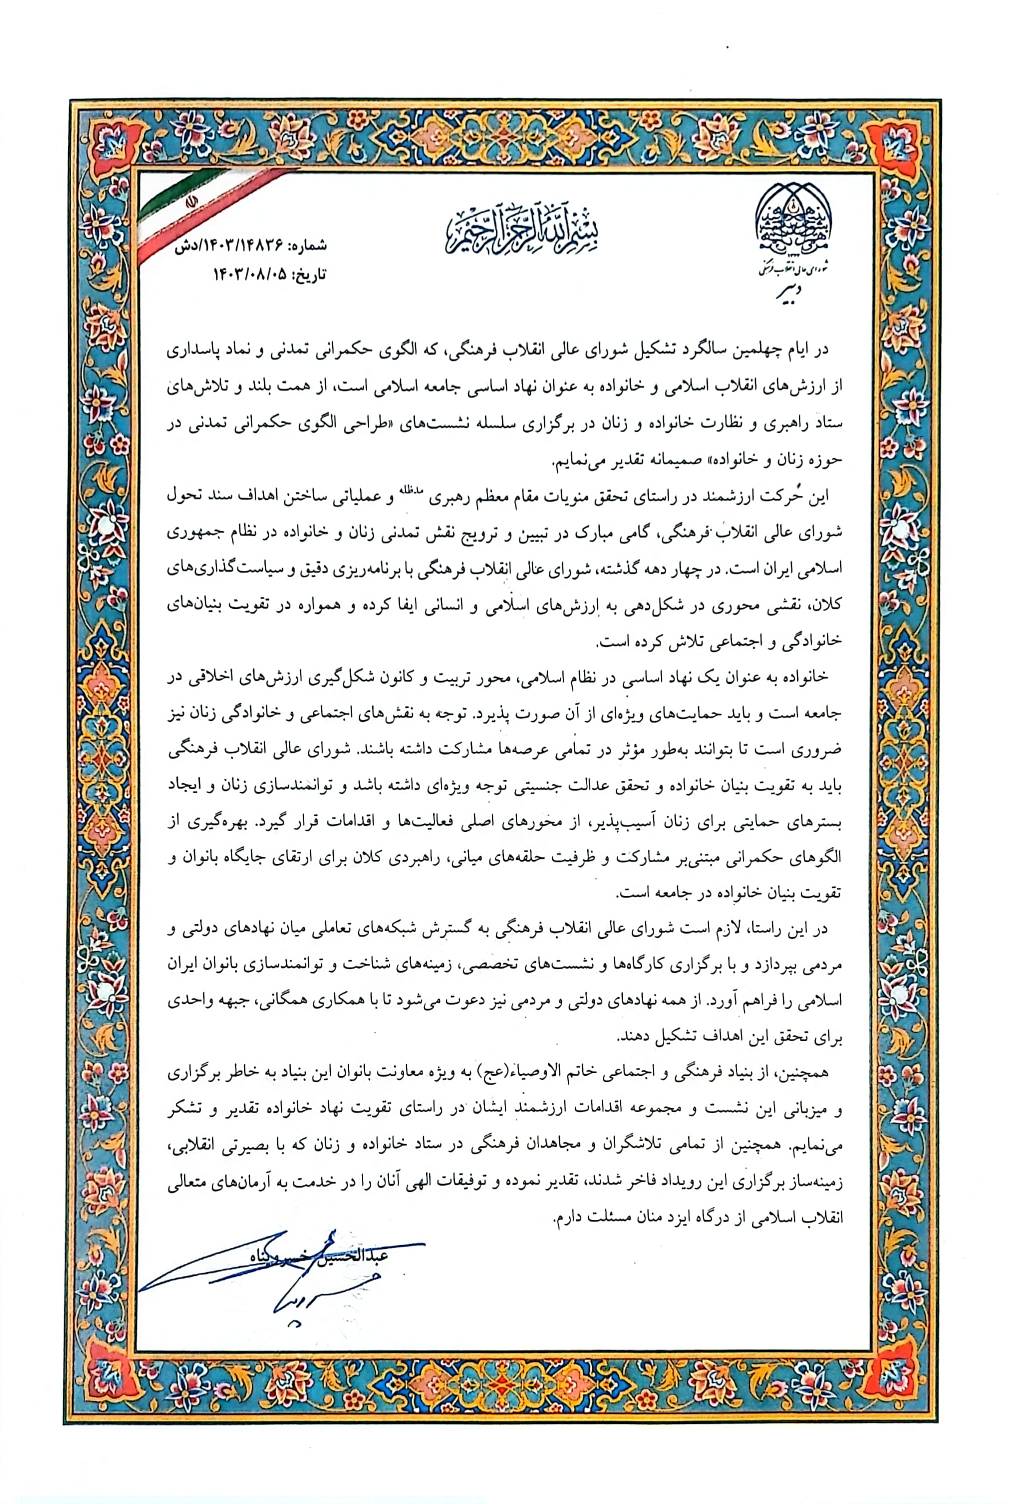 بسم الله الرحمن الرحیم
شورای عالی انقلاب فرهنگی
دبیر
شماره: ۱۴۰۳/۱۴۸۳۶/دش
تاریخ: ۱۴۰۳/۰۸/۰۵
در ایام چهلمین سالگرد تشکیل شورای عالی انقلاب فرهنگی، که الگوی حکمرانی تمدنی و نماد پاسداری
از ارزش‌های انقلاب اسلامی و خانواده به عنوان نهاد اساسی جامعه اسلامی است، از همت بلند و تلاش‌های
ستاد راهبری و نظارت خانواده و زنان در برگزاری سلسله نشست‌های «طراحی الگوی حکمرانی تمدنی در
حوزه زنان و خانواده» صمیمانه تقدیر می‌نمایم.
این حرکت ارزشمند در راستای تحقق منویات مقام معظم رهبری مدظله و عملیاتی ساختن اهداف سند تحول
شورای عالی انقلاب فرهنگی، گامی مبارک در تبیین و ترویج نقش تمدنی زنان و خانواده در نظام جمهوری
اسلامی ایران است. در چهار دهه گذشته، شورای عالی انقلاب فرهنگی با برنامه‌ریزی دقیق و سیاست‌گذاری‌های
کلان، نقشی محوری در شکل‌دهی به ارزش‌های اسلامی و انسانی ایفا کرده و همواره در تقویت بنیان‌های
خانوادگی و اجتماعی تلاش کرده است.
خانواده به عنوان یک نهاد اساسی در نظام اسلامی، محور تربیت و کانون شکل‌گیری ارزش‌های اخلاقی در
جامعه است و باید حمایت‌های ویژه‌ای از آن صورت پذیرد. توجه به نقش‌های اجتماعی و خانوادگی زنان نیز
ضروری است تا بتوانند به‌طور مؤثر در تمامی عرصه‌ها مشارکت داشته باشند. شورای عالی انقلاب فرهنگی
باید به تقویت بنیان خانواده و تحقق عدالت جنسیتی توجه ویژه‌ای داشته باشد و توانمندسازی زنان و ایجاد
بسترهای حمایتی برای زنان آسیب‌پذیر، از محورهای اصلی فعالیت‌ها و اقدامات قرار گیرد. بهره‌گیری از
الگوهای حکمرانی مبتنی‌بر مشارکت و ظرفیت حلقه‌های میانی، راهبردی کلان برای ارتقای جایگاه بانوان و
تقویت بنیان خانواده در جامعه است.
در این راستا، لازم است شورای عالی انقلاب فرهنگی به گسترش شبکه‌های تعاملی میان نهادهای دولتی و
مردمی بپردازد و با برگزاری کارگاه‌ها و نشست‌های تخصصی، زمینه‌های شناخت و توانمندسازی بانوان ایران
اسلامی را فراهم آورد. از همه نهادهای دولتی و مردمی نیز دعوت می‌شود تا با همکاری همگانی، جبهه واحدی
برای تحقق این اهداف تشکیل دهند.
همچنین، از بنیاد فرهنگی و اجتماعی خاتم الاوصیاء(عج) به ویژه معاونت بانوان این بنیاد به خاطر برگزاری
و میزبانی این نشست و مجموعه اقدامات ارزشمند ایشان در راستای تقویت نهاد خانواده تقدیر و تشکر
می‌نمایم. همچنین از تمامی تلاشگران و مجاهدان فرهنگی در ستاد خانواده و زنان که با بصیرتی انقلابی،
زمینه‌ساز برگزاری این رویداد فاخر شدند، تقدیر نموده و توفیقات الهی آنان را در خدمت به آرمان‌های متعالی
انقلاب اسلامی از درگاه ایزد منان مسئلت دارم.
عبدالحسین خسروپناه